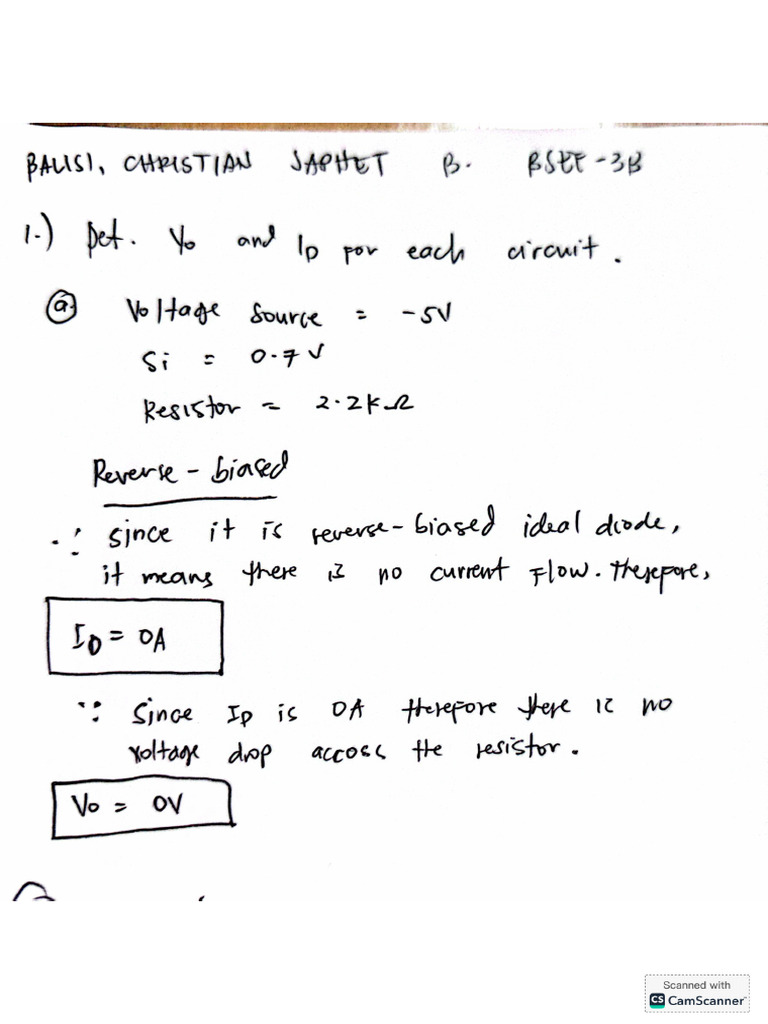 BALISI, CHRISTIAN JAPHET B. BSEE-3B
1.) Det. Vo and ID for each circuit.
ⓐ Voltage Source = -5V
Si = 0.7 V
Resistor = 2.2kΩ
Reverse - biased
∴ since it is reverse-biased ideal diode,
it means there is no current flow. Therefore,
ID = 0A
∵ Since ID is 0A therefore there is no
voltage drop across the resistor.
Vo = 0V
Scanned with
CS CamScanner